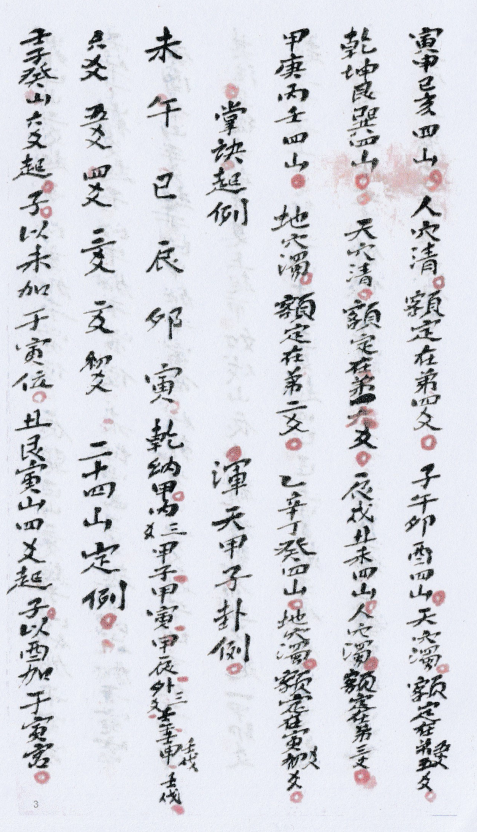 寅申巳亥四山人穴清額定在第四爻子午卯酉四山天穴濁額定在第五爻
乾坤艮巽四山天穴清額定在第六爻辰戌丑未四山人穴濁額定在第三爻
甲庚丙壬四山地穴濁額定在第二爻乙辛丁癸四山地穴濁額定在寅初爻
掌訣起例 渾天甲子卦例
未午巳辰卯寅乾納甲內三爻甲子甲寅甲辰外三爻壬午壬申壬戌
六爻五爻四爻三爻二爻初爻二十四山定例
壬子癸山六爻起子以未加于寅位丑艮寅山四爻起子以酉加于寅宮
3